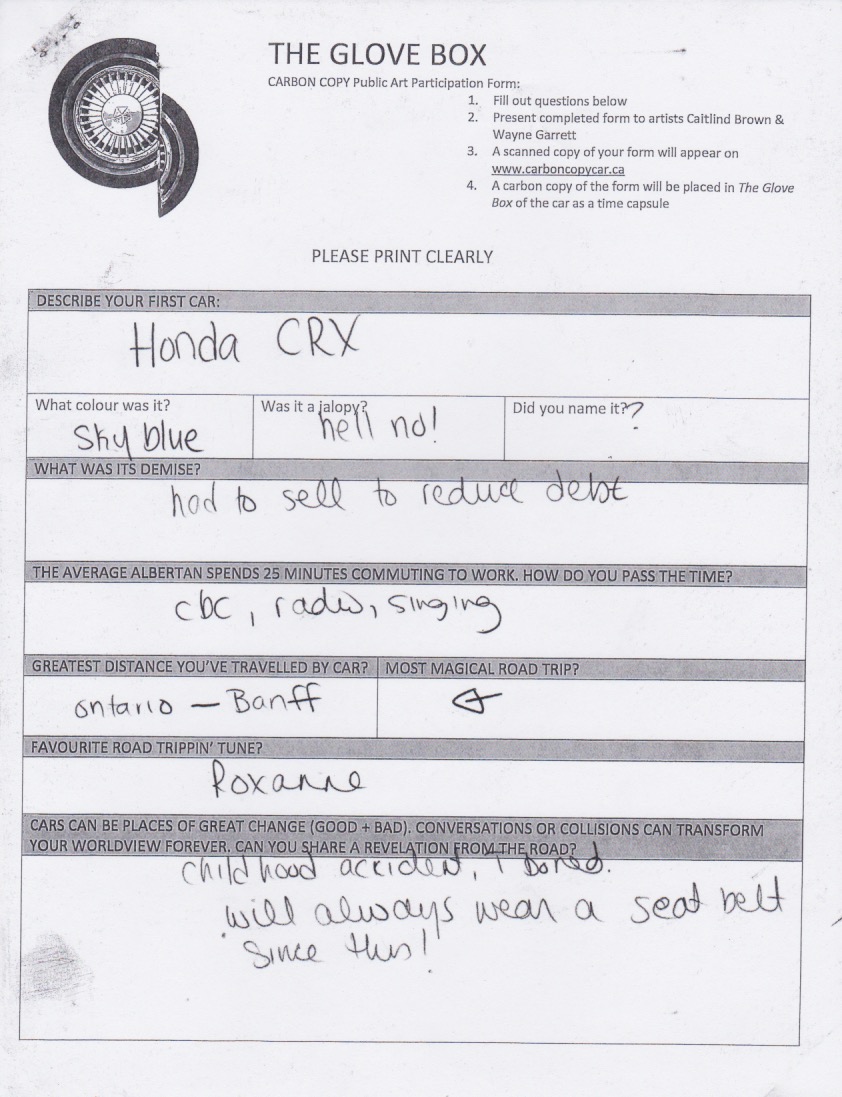 THE GLOVE BOX
CARBON COPY Public Art Participation Form:
1. Fill out questions below
2. Present completed form to artists Caitlind Brown &
Wayne Garrett
3. A scanned copy of your form will appear on
www.carboncopycar.ca
4. A carbon copy of the form will be placed in The Glove
Box of the car as a time capsule
PLEASE PRINT CLEARLY
DESCRIBE YOUR FIRST CAR:
Honda CRX
What colour was it?
Sky blue
Was it a jalopy?
hell no!
Did you name it??
WHAT WAS ITS DEMISE?
had to sell to reduce debt
THE AVERAGE ALBERTAN SPENDS 25 MINUTES COMMUTING TO WORK. HOW DO YOU PASS THE TIME?
cbc, radio, singing
GREATEST DISTANCE YOU'VE TRAVELLED BY CAR?
ontario — Banff
MOST MAGICAL ROAD TRIP?
←
FAVOURITE ROAD TRIPPIN' TUNE?
Roxanne
CARS CAN BE PLACES OF GREAT CHANGE (GOOD + BAD). CONVERSATIONS OR COLLISIONS CAN TRANSFORM
YOUR WORLDVIEW FOREVER. CAN YOU SHARE A REVELATION FROM THE ROAD?
childhood accident,
will always wear a seat belt
since this!